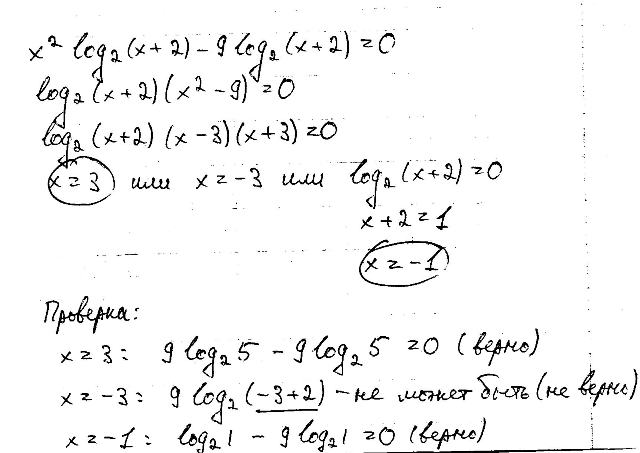 x² log₂(x+2) - 9 log₂(x+2) = 0
log₂(x+2)(x²-9) = 0
log₂(x+2)(x-3)(x+3) = 0
x = 3 или x = -3 или log₂(x+2) = 0
x+2 = 1
x = -1
Проверка:
x = 3: 9 log₂5 - 9 log₂5 = 0 (верно)
x = -3: 9 log₂(-3+2) - не может быть (не верно)
x = -1: log₂1 - 9 log₂1 = 0 (верно)